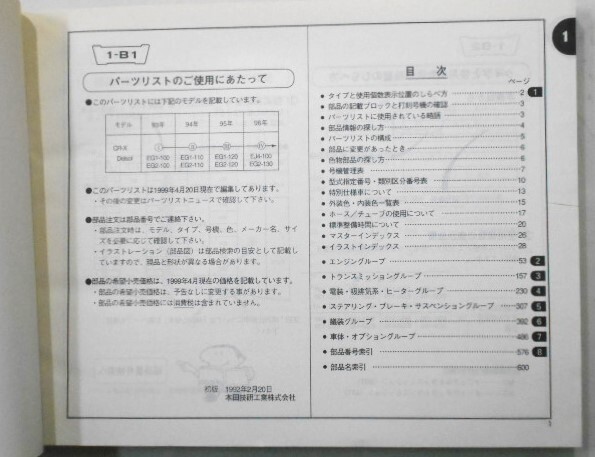 1-B1
パーツリストのご使用にあたって
●このパーツリストには下記のモデルを記載しています。
モデル 93年 94年 95年 96年
CR-X Ⅰ Ⅱ Ⅲ Ⅳ
Delsol EG1-100 EG1-110 EG1-120 EJ4-100
EG2-100 EG2-110 EG2-120 EG2-130
●このパーツリストは1999年4月20日現在で編集してあります。
・その後の変更はパーツリストニュースで確認して下さい。
●部品注文は部品番号でご連絡下さい。
・部品注文時は、モデル、タイプ、号機、色、メーカー名、サイ
ズを必要に応じて確認して下さい。
・イラストレーション（部品図）は部品検索の目安として記載し
ていますので、現品と形状が異なる場合があります。
●部品の希望小売価格は、1999年4月現在の価格を記載しています。
・部品の希望小売価格は、予告なしに変更する事があります。
・部品の希望小売価格には消費税は含まれていません。
初版 1992年2月20日
本田技研工業株式会社
1
目 次
ページ
● タイプと使用個数表示位置のしらべ方 2 1
● 部品の記載ブロックと打刻号機の確認 3
● パーツリストに使用されている略語 3
● 部品情報の探し方 4
● パーツリストの構成 5
● 部品に変更があったとき 6
● 色物部品の探し方 6
● 号機管理表 7
● 型式指定番号・類別区分番号表 10
● 特別仕様車について 13
● 外装色・内装色一覧表 15
● ホース／チューブの使用について 17
● 標準整備時間について 20
● マスターインデックス 26
● イラストインデックス 28
● エンジングループ 53 2
● トランスミッショングループ 157 3
● 電装・吸排気系・ヒーターグループ 230 4
● ステアリング・ブレーキ・サスペンショングループ 307 5
● 艤装グループ 392 6
● 車体・オプショングループ 486 7
● 部品番号索引 576 8
● 部品名索引 600
1